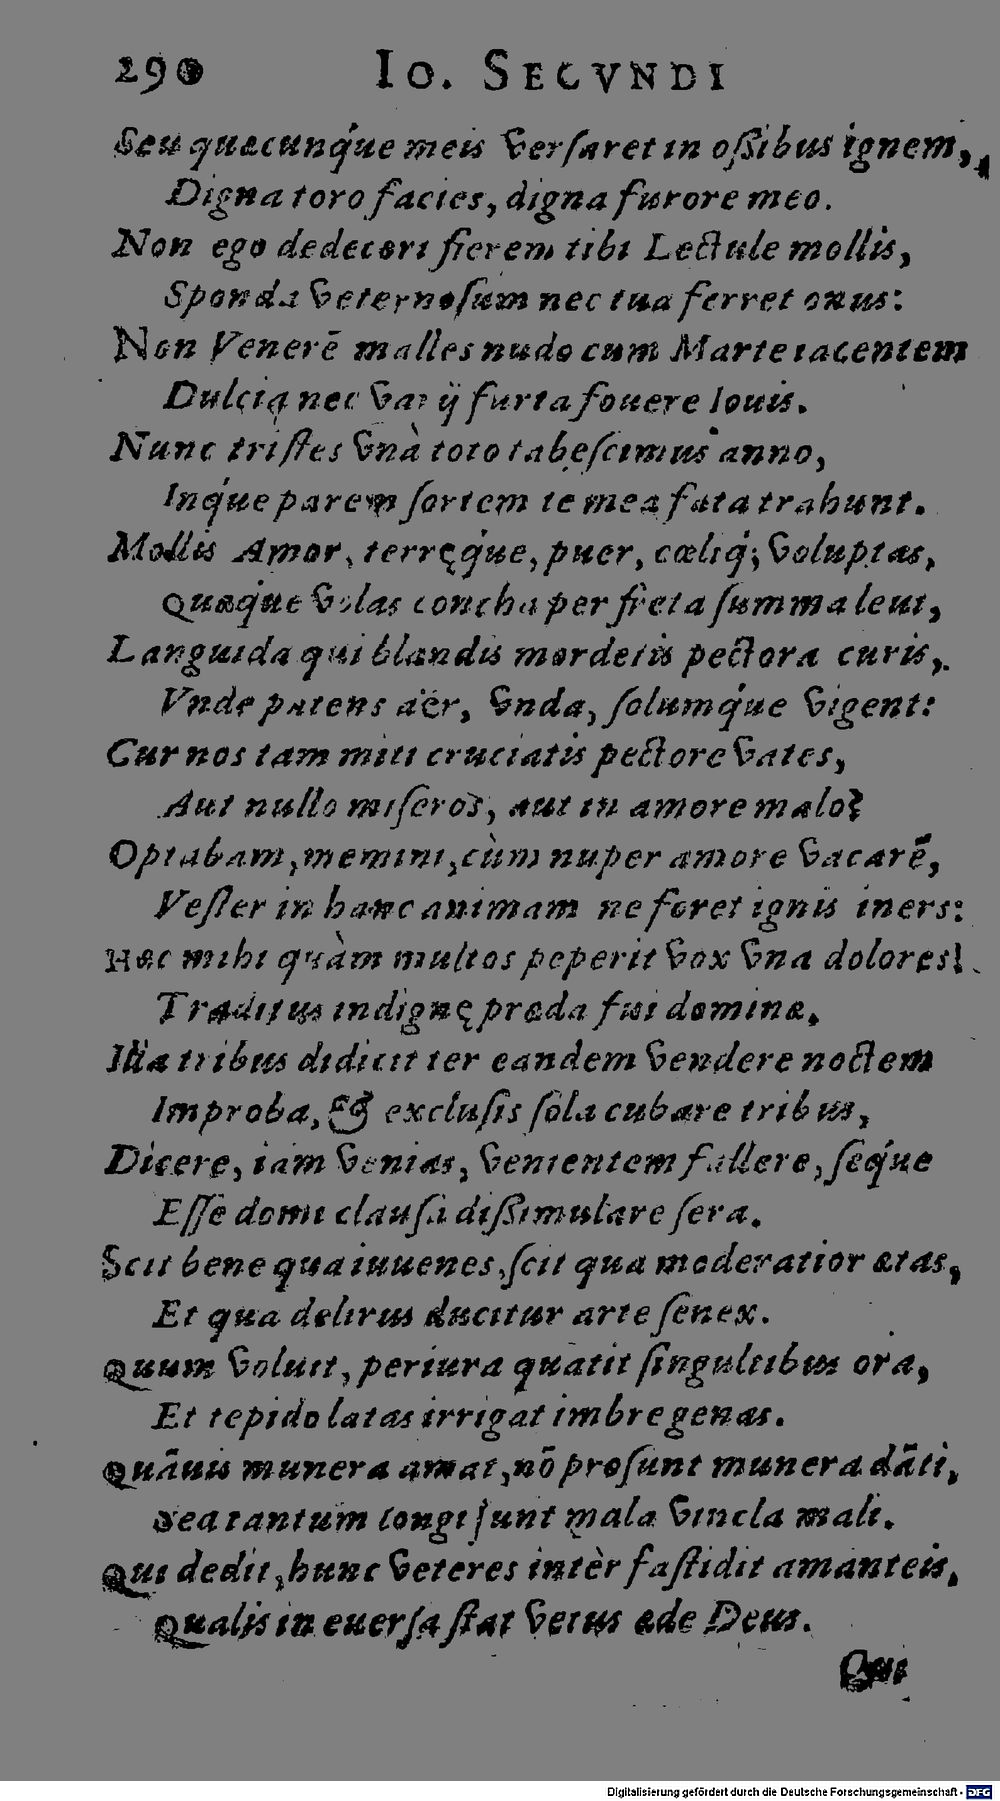 290 IO. SECVNDI
Seu quæcunq́ue meis versaret in oßibus ignem,
Digna toro facies, digna furore meo.
Non ego dedecori fierem tibi Lectule mollis,
Sponda veternosum nec tua ferret onus:
Non Venerē malles nudo cum Marte iacentem
Dulcia nec varij furta fouere Iouis.
Nunc tristes vnà toto tabescimus anno,
Inq́ue parem sortem te mea fata trahunt.
Mollis Amor, terręq́ue, puer, cœliq́; voluptas,
Quæq́ue volas concha per freta summa leui,
Languida qui blandis mordetis pectora curis,
Vnde patens aër, vnda, solumq́ue vigent:
Cur nos tam miti cruciatis pectore vates,
Aut nullo miseros, aut in amore malo?
Optabam, memini, cùm nuper amore vacarē,
Vester in hanc animam ne foret ignis iners:
Hæc mihi quàm multos peperit vox vna dolores!
Traditus indignę præda fui dominæ.
Illa tribus didicit ter eandem vendere noctem
Improba, & exclusis sola cubare tribus,
Dicere, iam venias, venientem fallere, seq́ue
Esse domi clausa dißimulare sera.
Scit bene qua iuuenes, scit qua moderatior ætas,
Et qua delirus ducitur arte senex.
Quum voluit, periura quatit singultibus ora,
Et tepido latas irrigat imbre genas.
Quāuis munera amat, nō prosunt munera dāti,
Sed tantum longi sunt mala vincla mali.
Qui dedit, hunc veteres intèr fastidit amanteis,
Qualis in euersa stat vetus æde Deus.
Qui
Digitalisierung gefördert durch die Deutsche Forschungsgemeinschaft - DFG